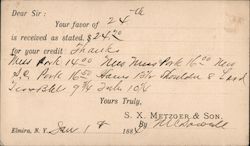 Dear Sir:
Your favor of 24th
is received as stated. $24.20
for your credit. Thanks
Mess Pork 14.00 New Mess Pork 16.00 New
S.C. Pork 16.50 Hams 13½ Shoulder 8 Lard
Tierces 9¾ Tubs 10¼
Yours Truly,
S. X. METZGER & SON.
Elmira, N. Y. Jan 1 8 1884 By